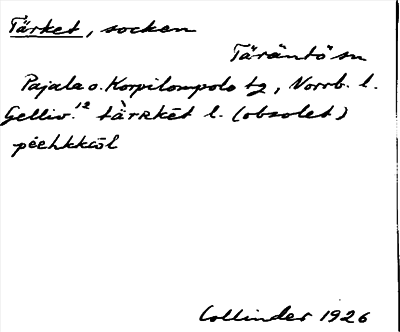 Tärket, socken
Täräntö sn
Pajala o. Korpilompolo tg, Norrb. l.
Gelliv.¹² tàrrkēt l. (obsolet)
Collinder 1926